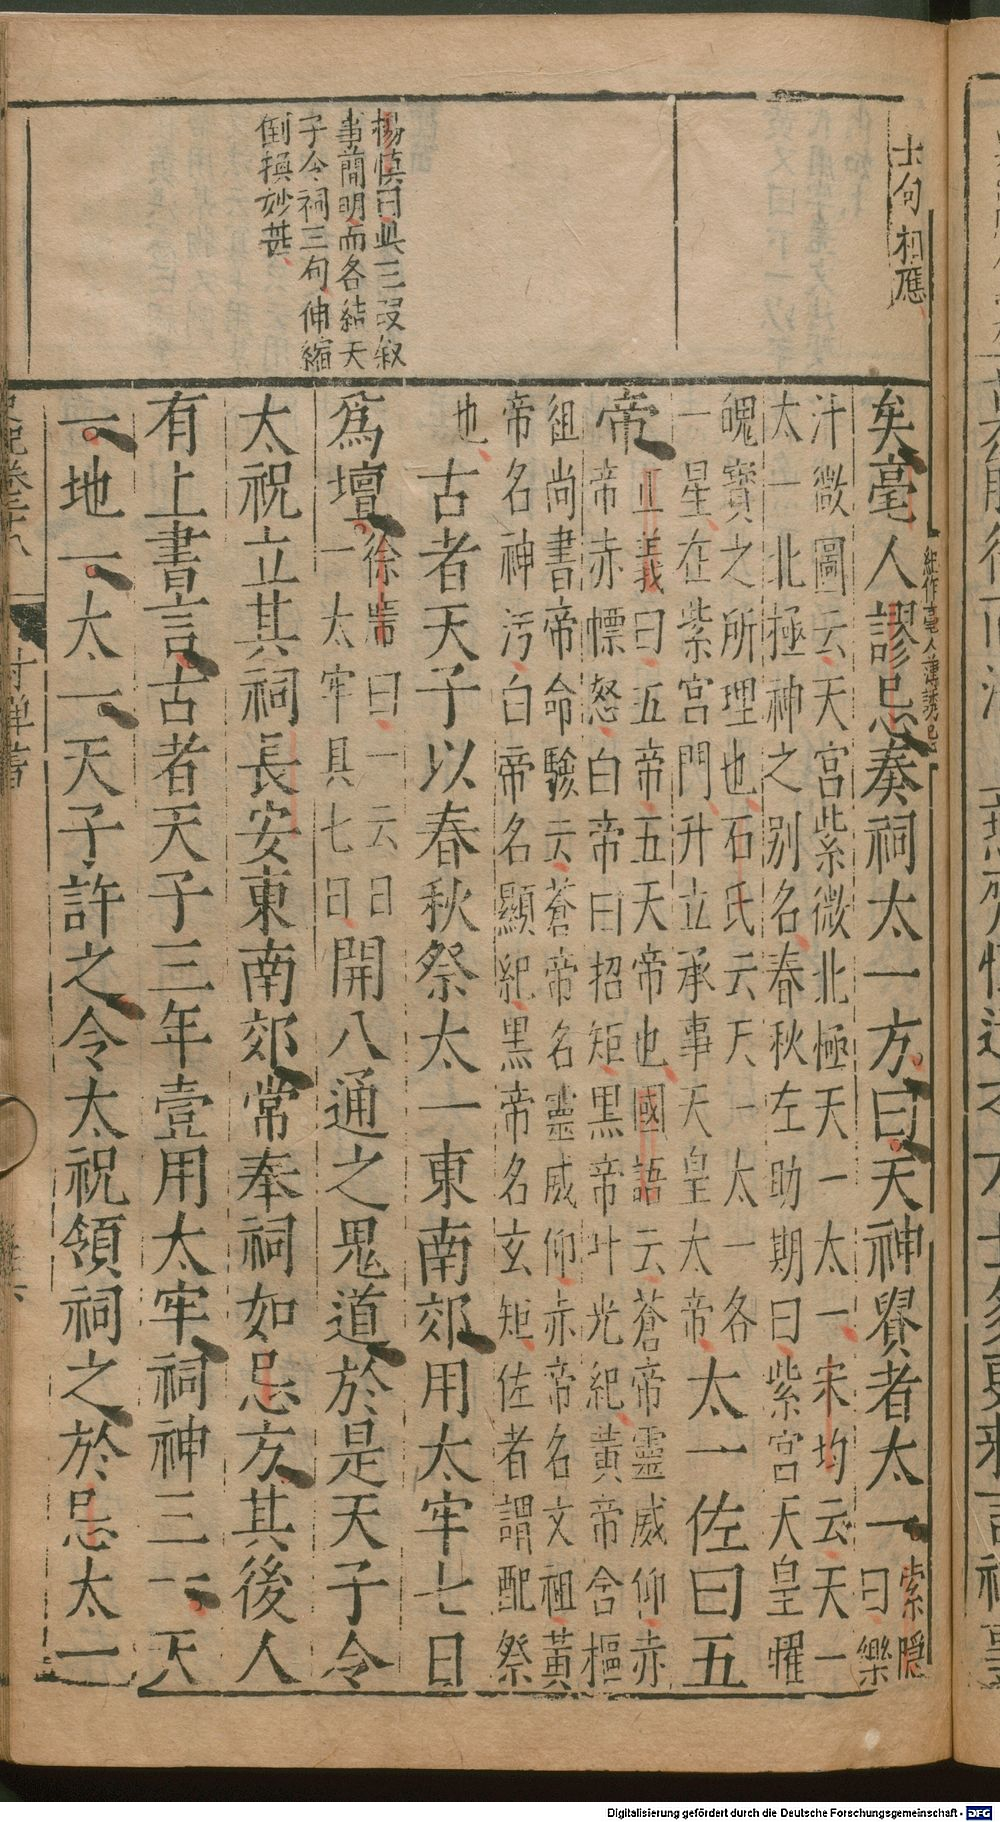 士句相應
楊慎曰此三段叙
事簡明而各結天
子令祠三句伸縮
倒換妙甚
矣亳人謬忌奏祠太一方曰天神貴者太一索隱
曰樂
汁徵圖云天宮紫微北極天一太一宋均云天一
太一北極神之別名春秋左助期曰紫宮天皇曜
魄寶之所理也石氏云天一太一各
一星在紫宮門外立承事天皇太帝
太一佐曰五
帝
正義曰五帝五天帝也國語云蒼帝靈威仰赤
帝赤熛怒白帝曰招矩黑帝叶光紀黃帝含樞
紐尚書帝命驗云蒼帝名靈威仰赤帝名文祖黃
帝名神汚白帝名顯紀黑帝名玄矩佐者謂配祭
也
古者天子以春秋祭太一東南郊用太牢七日
爲壇
徐廣曰一云日
一太牢具七日
開八通之鬼道於是天子令
太祝立其祠長安東南郊常奉祠如忌方其後人
有上書言古者天子三年壹用太牢祠神三一天
一地一太一天子許之令太祝領祠之於忌太一
史記卷二十八
封禪書
Digitalisierung gefördert durch die Deutsche Forschungsgemeinschaft - DFG